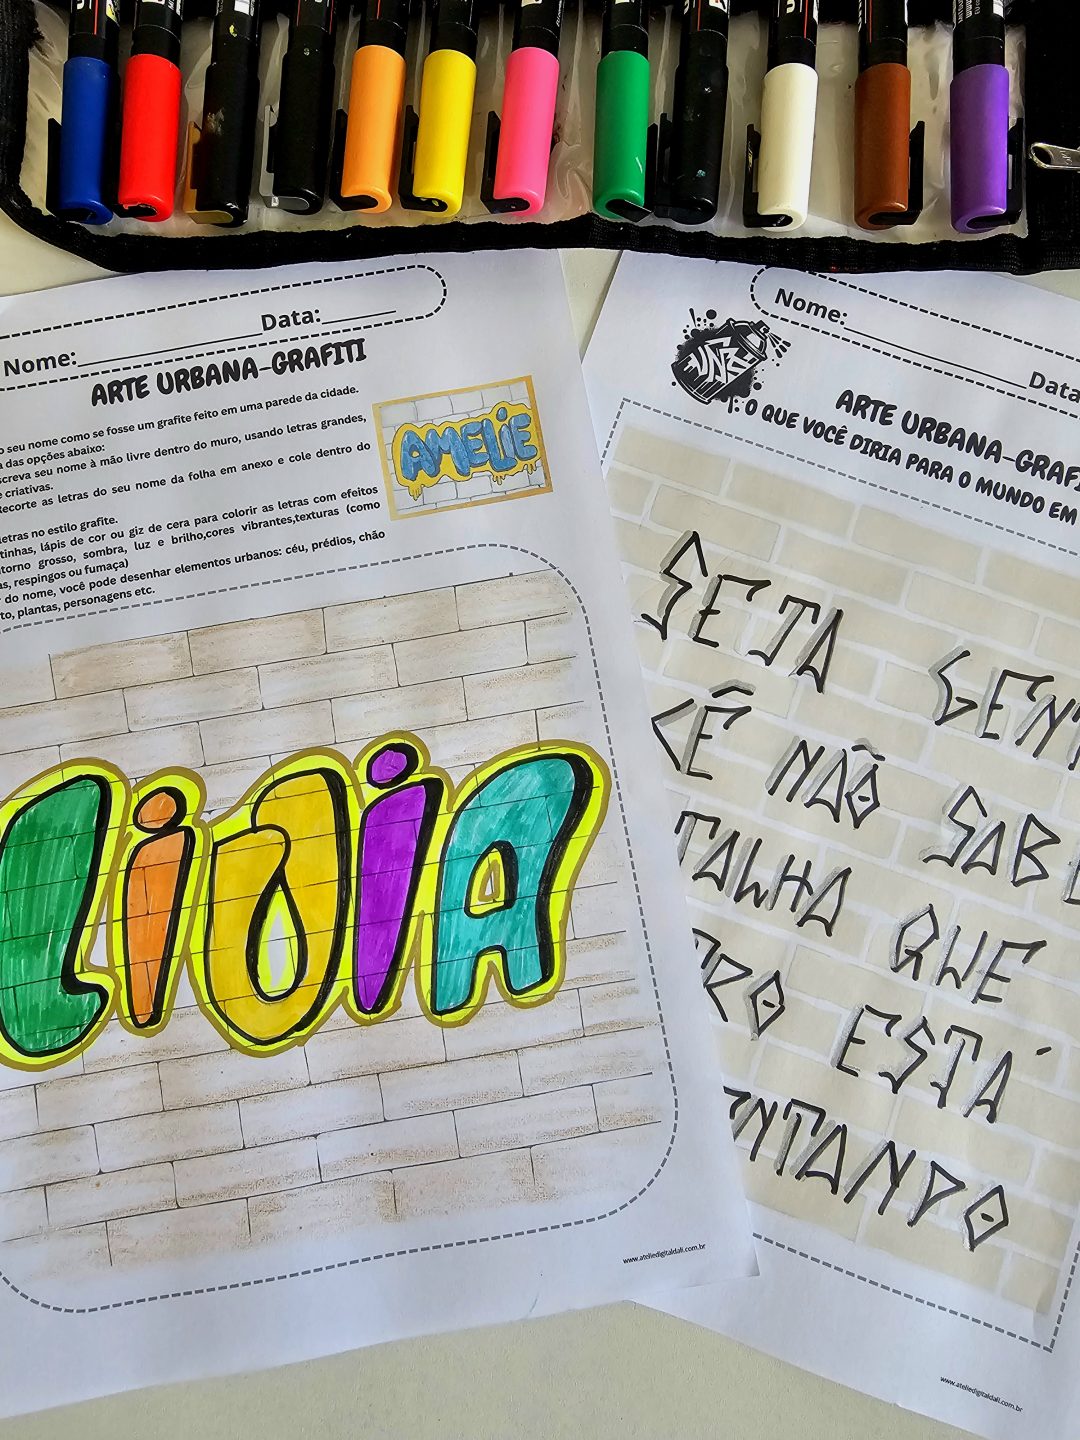 Nome: Data:
ARTE URBANA-GRAFITI
o seu nome como se fosse um grafite feito em uma parede da cidade.
das opções abaixo:
screva seu nome à mão livre dentro do muro, usando letras grandes,
e criativas.
Recorte as letras do seu nome da folha em anexo e cole dentro do
letras no estilo grafite.
tinhas, lápis de cor ou giz de cera para colorir as letras com efeitos
ntorno grosso, sombra, luz e brilho,cores vibrantes,texturas (como
as, respingos ou fumaça)
r do nome, você pode desenhar elementos urbanos: céu, prédios, chão
to, plantas, personagens etc.
AMELIE
LIDIA
www.ateliedigitaldali.com.br
Nome: Data
ARTE URBANA-GRAFI
1: O QUE VOCÊ DIRIA PARA O MUNDO EM
SEJA GENT
CÊ NÃO SABE
TALHA QUE
TRO ESTÁ
ENTANDO
www.ateliedigitaldali.com.br